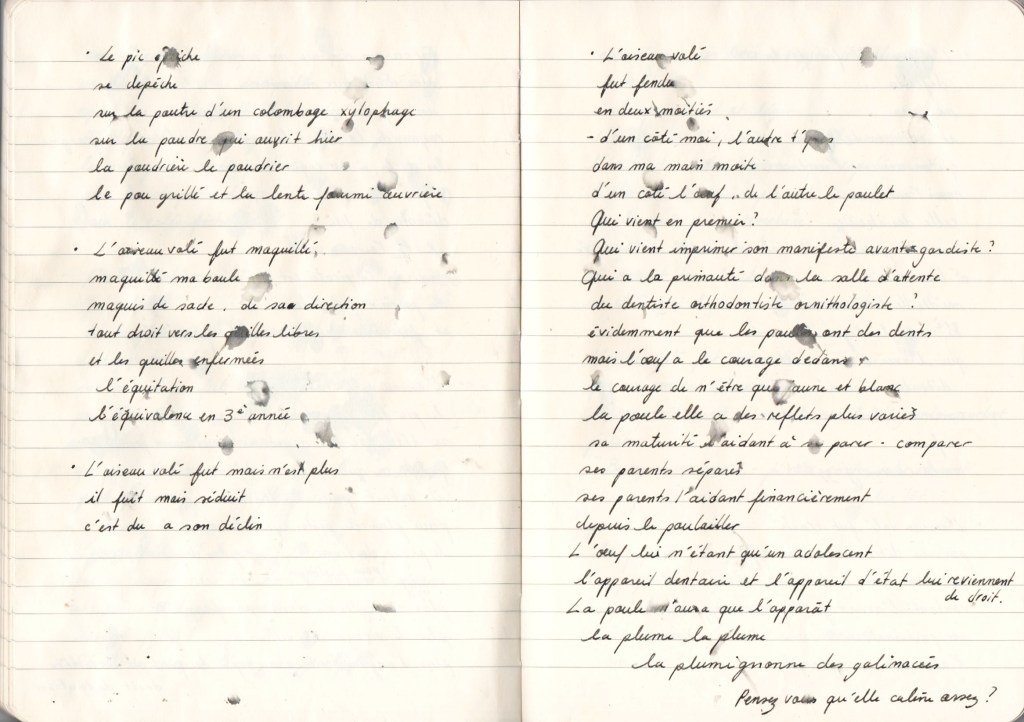 · Le pic épeiche
se depêche
sur la poutre d'un colombage xylophage
sur la poudre qui ouvrit hier
la poudrière le poudrier
le pou grillé et la lente fourmi ouvrière
· L'oiseau volé fut maquillé,
maquillé ma boule
maquis de sacte. de sac direction
tout droit vers les quilles libres
et les quilles enfermées
l'équitation
l'équivalence en 3e année
· L'oiseau volé fut mais n'est plus
il fuit mais séduit
c'est du a son déclin
· L'oiseau volé
fut fendu
en deux moitiés
- d'un côté moi, l'autre
dans ma main moite
d'un coté l'oeuf .. de l'autre le poulet
Qui vient en premier?
Qui vient imprimer son manifeste avant-gardiste?
Qui a la primauté dans la salle d'attente
du dentiste orthodontiste ornithologiste ?
évidemment que les poules ont des dents
mais l'oeuf a le courage dedans
le courage de n'être que jaune et blanc
la poule elle a des reflets plus variés
sa maturité l'aidant à se parer . comparer
ses parents séparés
ses parents l'aidant financièrement
depuis le poulailler
L'oeuf lui n'étant qu'un adolescent
l'appareil dentaire et l'appareil d'état lui reviennent
de droit.
La poule n'aura que l'apparât
la plume la plume
la plumignonne des galinacées
Pensez vous qu'elle caline assez?